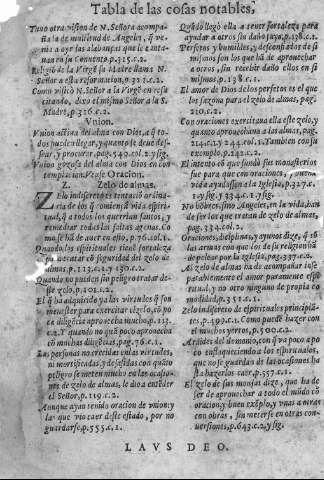 Tabla de las cosas notables,
Tuuo otra vision de N. Señora acompa-
ñada de multitud de Angeles, q̃ ve-
nia a oyr las alabanças que le canta-
uan en su Conuento.p.315.c.2.
Religiõ de la Virgẽ la Madre llama N.
Señor a esta reformacion.p.317.c.1.
Como visitò N. Señor a la Virgẽ en resu
citando, dixo el mismo Señor a la S.
Madre, p.316.c.2.
Vnion.
Vnion actiua del alma con Dios, a q̃ to-
dos puedẽ llegar, y quanto se deue des-
sear, y procurar, pag.496.col.2.y sig.
Vnion gozosa del alma con Dios en con-
templacion. Vease Oracion.
Z. Zelo de almas.
Zelo indiscreto es tentaciõ ordina-
ria de los q̃ comiençã vida espiri-
tual, q̃ a todos los querrian santos, y
remediar todas las faltas agenas. Co
mo se hâ de auer en esto, p.76.col.1.
Quando los espirituales tienẽ fortaleza
para tratar cõ seguridad del zelo de
almas, p.113.c.1.y 130.c.2.
Quando no pueden sin peligro tratar de-
ste zelo, p.101.c.2.
El q̃ ha adquirido ya las virtudes q̃ son
menester para exercitar el zelo, cõ po
ca diligẽcia aprouecha mucho.p.113.
c.2. Y quando no q̃ poco aprouecha
cõ muchas diligẽcias, pag.76.c.1.
Las personas no creçidas en las virtudes,
ni mortificadas, y deshasidas con quãto
peligro se meten mucho en las ocasio-
nes de zelo de almas, le dio a entender
el Señor, p.119.c.2.
Aunque ayan tenido oracion de vnion; y
las que vio caer deste estado, por no
guardarse.p.555.c.1.
Quãdo llegó ella a tener fortaleza para
ayudar a otros sin daño suyo.p.138.c.1.
Perfetos y humildes, y desconfiados de si
mismos son los que hã de aprouechar
a otros, sin recebir daño ellos en si
mismos.p.138.c.1.
El amor de Dios de los perfetos es el que
los sazona para el zelo de almas, pag.
210.c.2.
Con oraciones exercitaua ella este zelo, y
quanto aprouechaua a las almas, pag.
214.c.1.y 244.col.1. Tambien con su
exemplo, p.242.c.2.
El intento cõ que fundò sus monasterios
fue para que con oraciones, y santa
vida ayudassen a la Iglesia, p.327.c.
1.y sig. y 334.c.1.y sig.
No hõbres, sino Angeles, en la vida, han
de ser los que tratan de zelo de almas,
pag.334.col.2.
Oraciones, disciplinas, y ayunos dize, q̃ sõ
las armas con que los de su religion hã
de pelear por la Iglesia, pag.337.c.2.
Al zelo de almas ha de acompañar inse
parablemente el amor puramente espi-
ritual, y no otro ninguno de propia co
modidad.p.351.c.1.
Zelo indiscreto de espirituales principiã-
tes, p.499.c.1. Como puede hazer con
el muchos yerros, p.500.c.2.
Ardides del demonio, con q̃ va poco a po
co enflaqueciendo los espirituales,
que no se guardan de las ocasiones ha
sta hazerlos caer, p.557.c.1.
El zelo de sus monjas dize, que ha de
ser de aprouechar a todo el mũdo cõ
oracion: y buen exẽplo, y vnas a otras
con obras, sin meterse en otras con-
uersiones, p.643.c.2.y sig.
LAVS DEO.